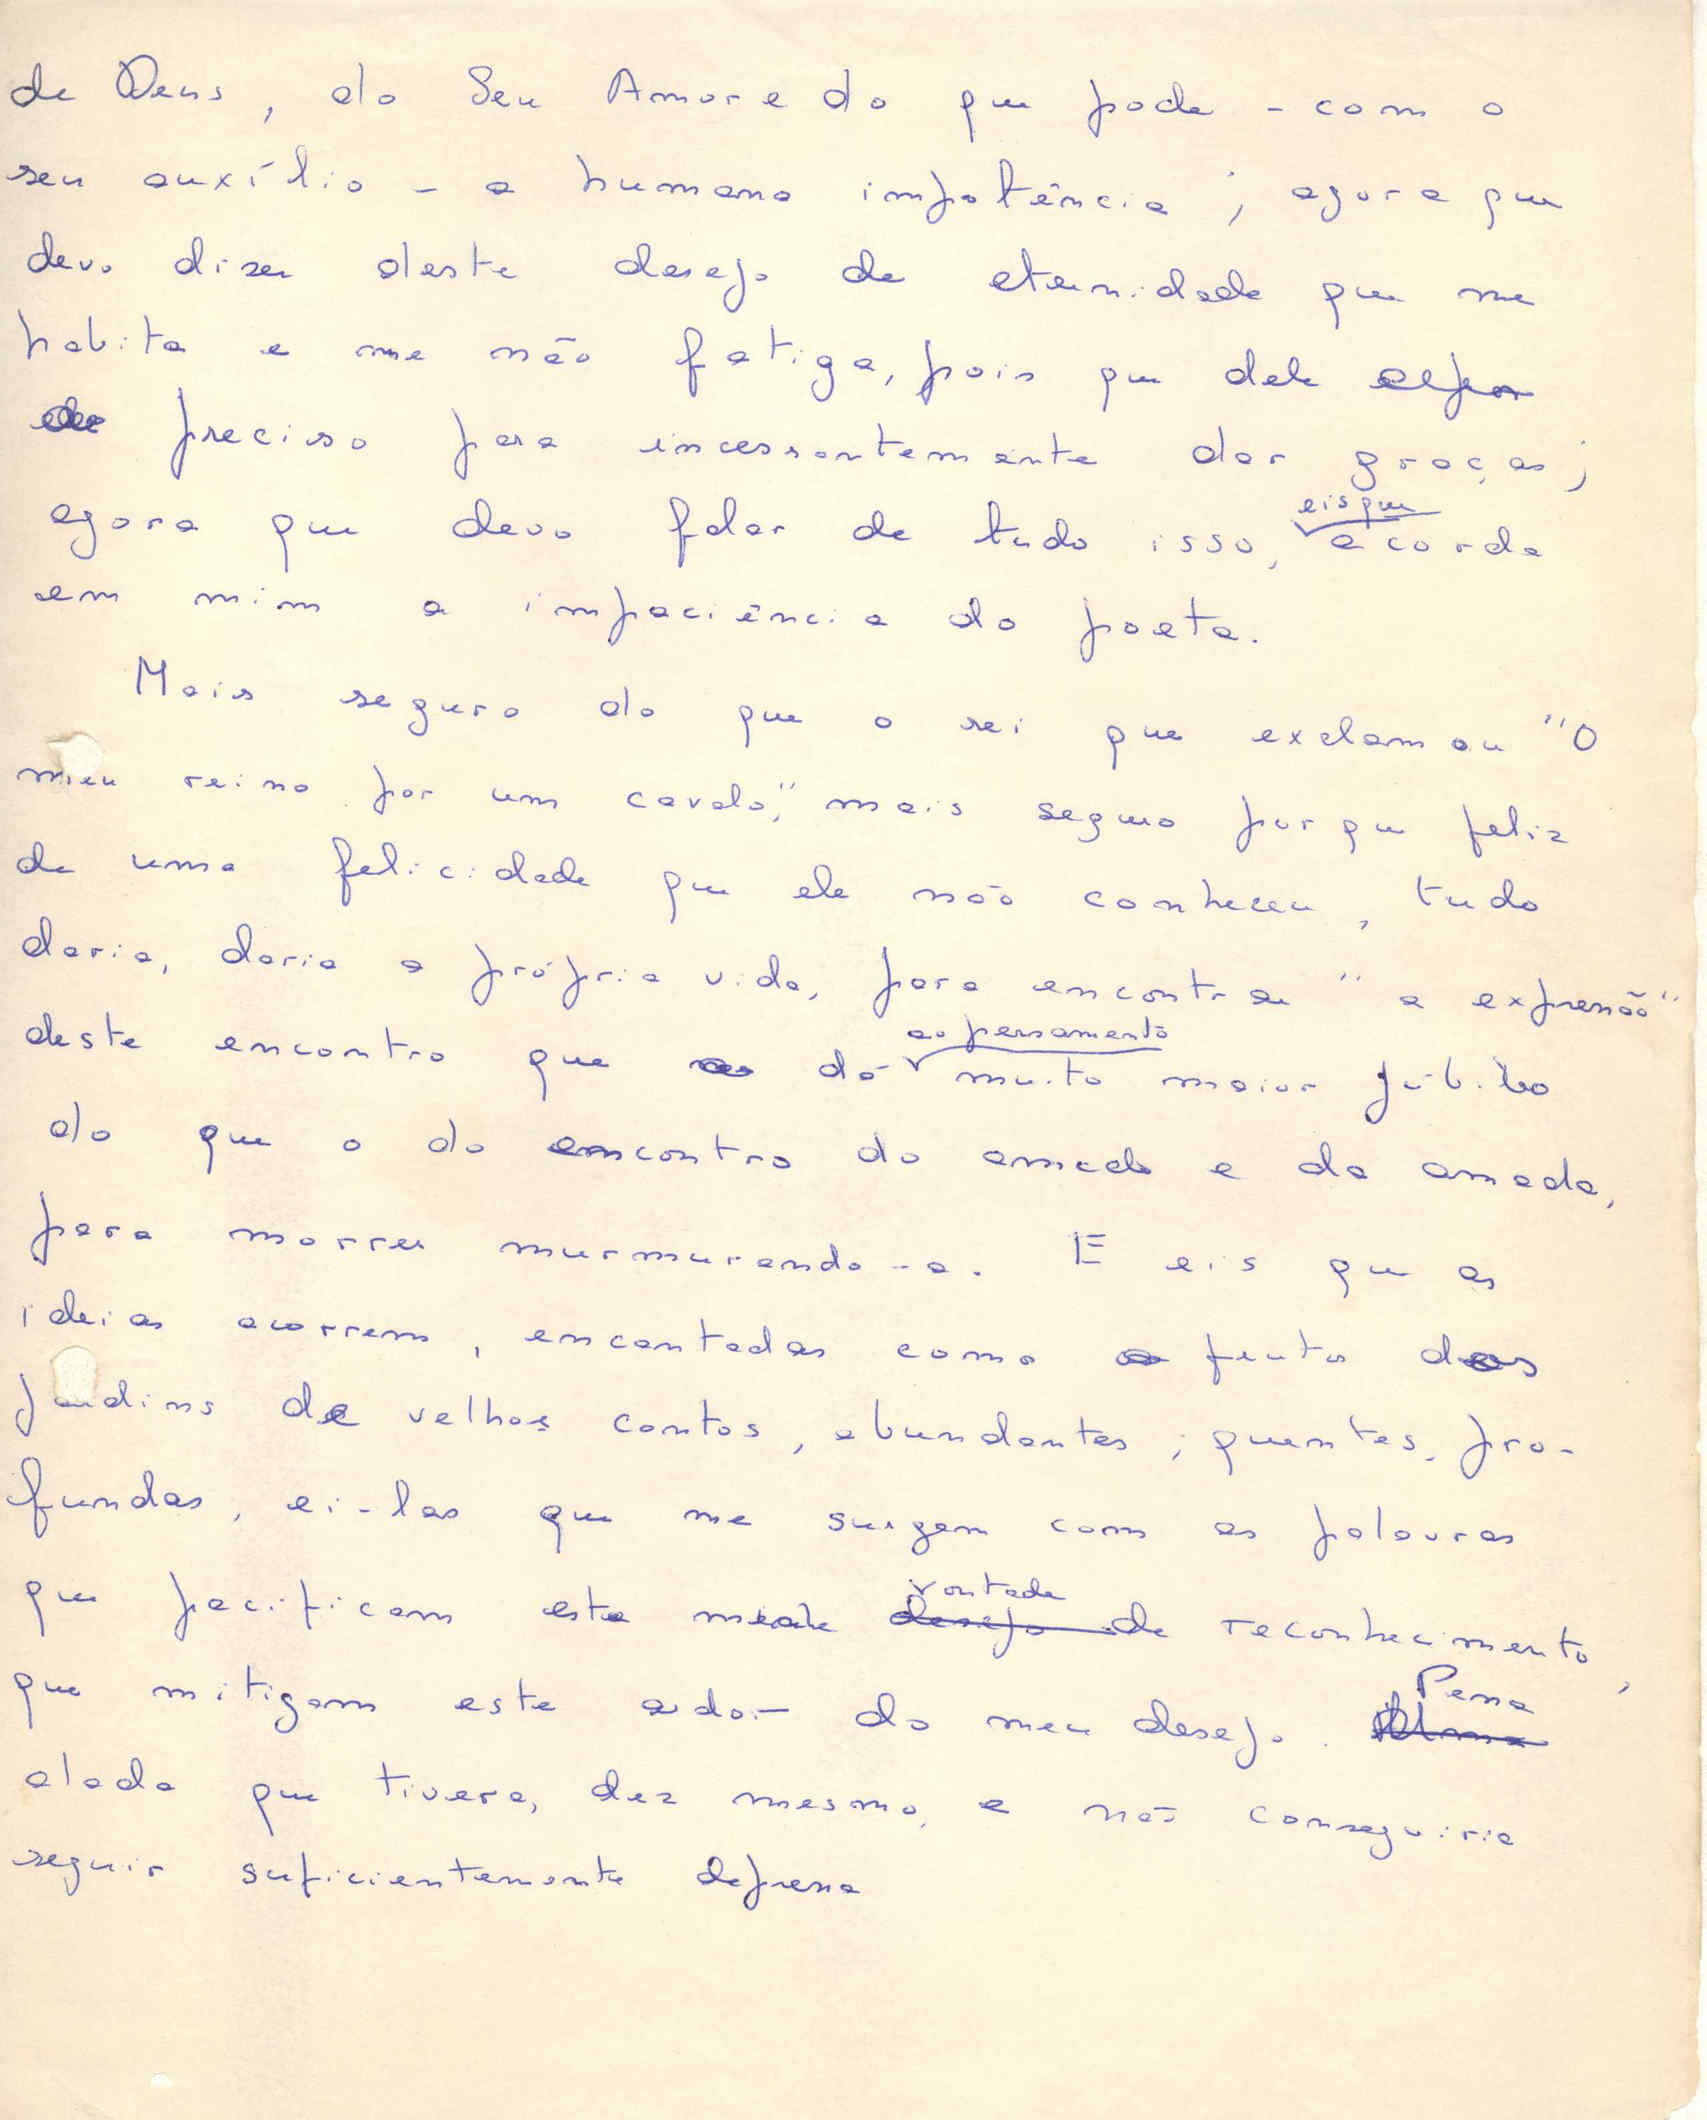 de Deus, do Seu Amor e do que pode - com o
seu auxílio - a humana impotência; agora que
devo dizer deste desejo de eternidade que me
habita e me não fatiga, pois que dele
preciso para incessantemente dar graças;
agora que devo falar de tudo isso, eis que acorda
em mim a impaciência do poeta.
Mais seguro do que o rei que exclamou "O
meu reino por um cavalo", mais seguro porque feliz
de uma felicidade que ele não conheceu, tudo
daria, daria a própria vida, para encontrar "a expressão"
deste encontro que dá ao pensamento muito maior júbilo
do que o do encontro do amado e da amada,
para morrer murmurando-a. E eis que as
ideias acorrem, encantadas como frutos dos
jardins de velhos contos, abundantes, quentes, pro-
fundas, ei-las que me surgem com as palavras
que pacificam esta minha desejo vontade de reconhecimento,
que mitigam este ardor do meu desejo. Alma Pena
alada que tivera, dez mesmo, e não conseguiria
seguir suficientemente depressa